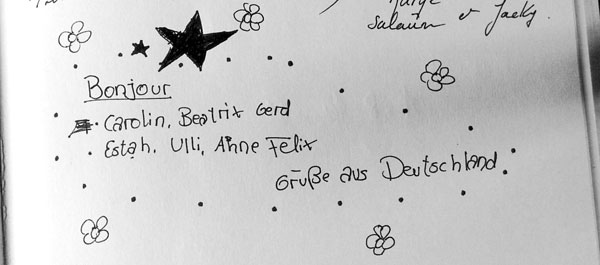 Salaün et Jacky.
Bonjour
Carolin, Beatrix Gerd
Estah, Ulli, Anne Felix
Grüße aus Deutschland